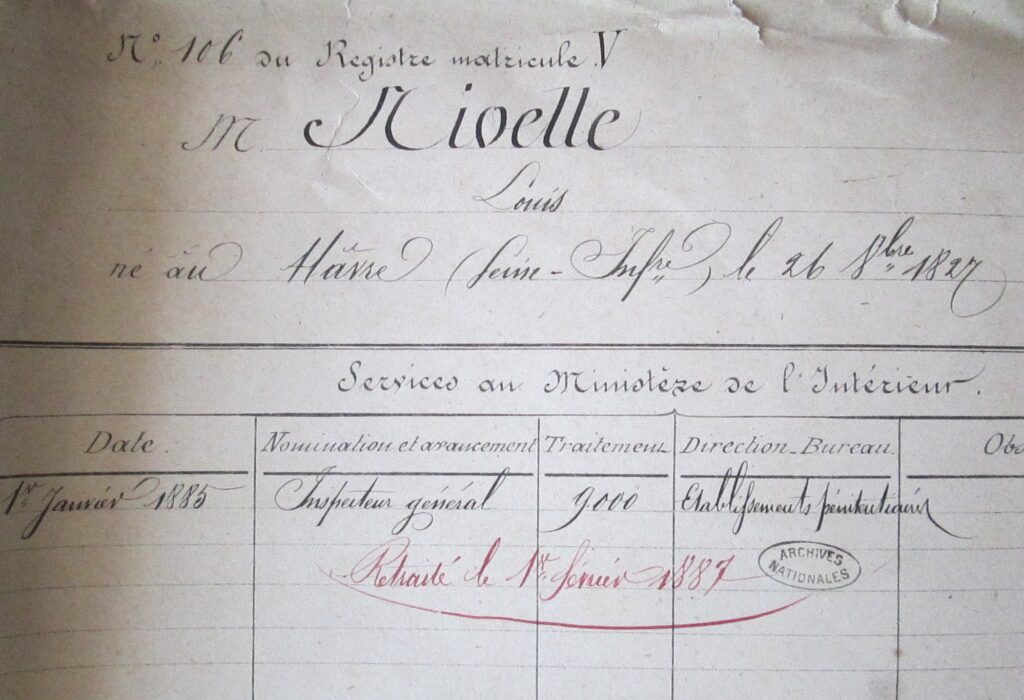 N° 106 du Registre matricule V
M Nivelle
Louis
né au Hâvre (Seine-Infre), le 26 8bre 1827
Services au Ministère de l'Intérieur.
Date. Nomination et avancement Traitement Direction_Bureau. Obs
1er Janvier 1885 Inspecteur général 9000 Etablissements pénitentiaires
Retraité le 1er février 1887
ARCHIVES
NATIONALES